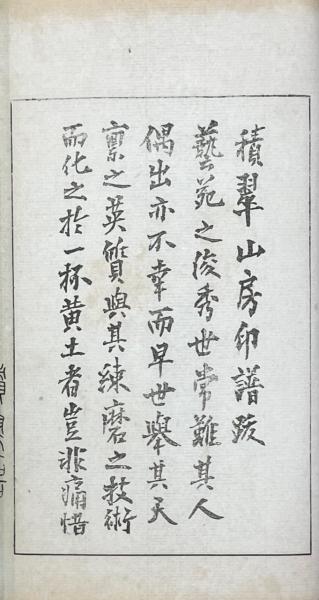 積翠山房印譜跋
藝苑之俊秀世常難其人
偶出亦不幸而早世舉其天
稟之英質與其練磨之技術
而化之於一抔黄土者豈非痛惜